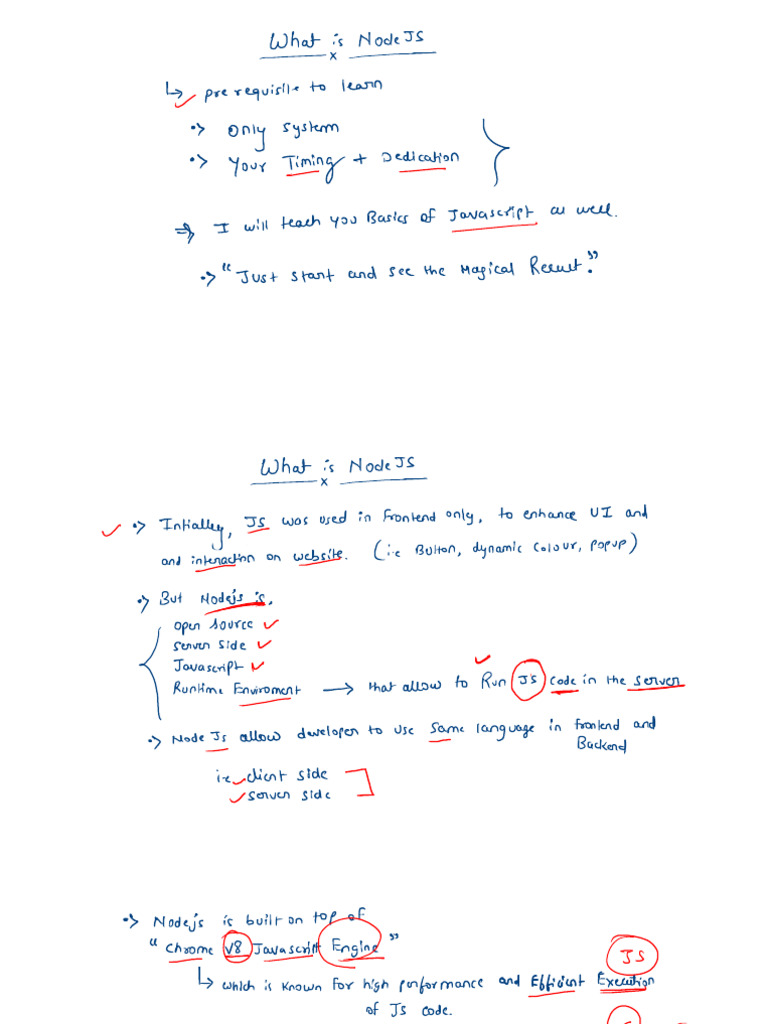 What is NodeJS
x
↳ prerequisite to learn
•> Only system
•> Your Timing + Dedication
⇒ I will teach you Basics of Javascript as well.
•> “Just start and see the Magical Result.”
What is NodeJS
x
•> Intialley, JS was used in Frontend only, to enhance UI and
and interaction on website. (i.e Button, dynamic Colour, Popup)
•> But Nodejs is,
open source
server side
Javascript
Runtime Enviroment → that allow to Run JS code in the server
•> Node Js allow developer to use same language in frontend and
Backend
i.e client side
server side
•> Nodejs is built on top of
“ Chrome V8 Javascript Engine ”
JS
↳ which is known for high performance and Efficient Execution
of JS code.